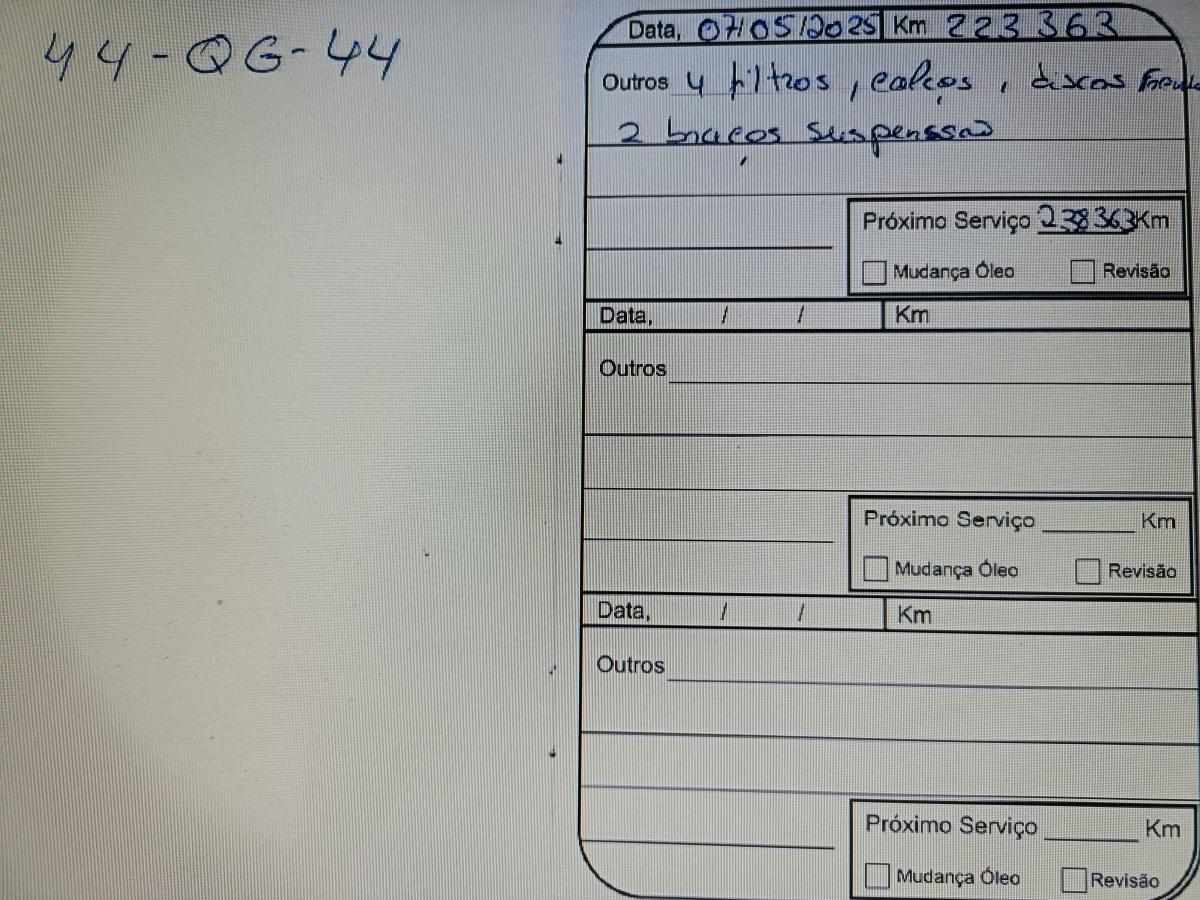 44-QG-44
Data, 07/05/2025 Km 223 363
Outros 4 filtros, calços, discos
2 braços suspenssão
Próximo Serviço 238363 Km
Mudança Óleo Revisão
Data, / / Km
Outros
Próximo Serviço Km
Mudança Óleo Revisão
Data, / / Km
Outros
Próximo Serviço Km
Mudança Óleo Revisão